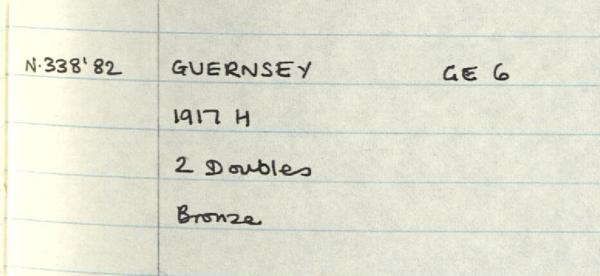 N.338'82 GUERNSEY GE 6
1917 H
2 Doubles
Bronze